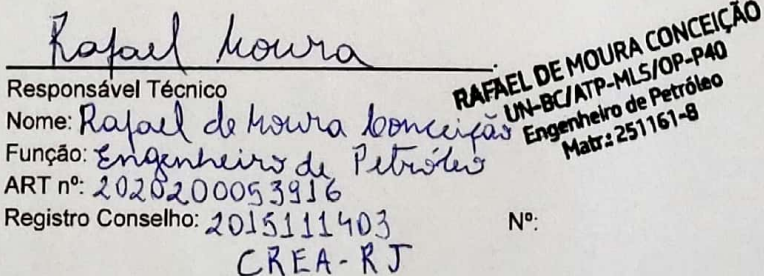 Rafael Moura
Responsável Técnico
Nome: Rafael de Moura Conceição
Função: Engenheiro de Petróleo
ART nº: 2020200053916
Registro Conselho: 2015111403 Nº:
CREA-RJ
RAFAEL DE MOURA CONCEIÇÃO
UN-BC/ATP-MLS/OP-P40
Engenheiro de Petróleo
Matr.: 251161-8